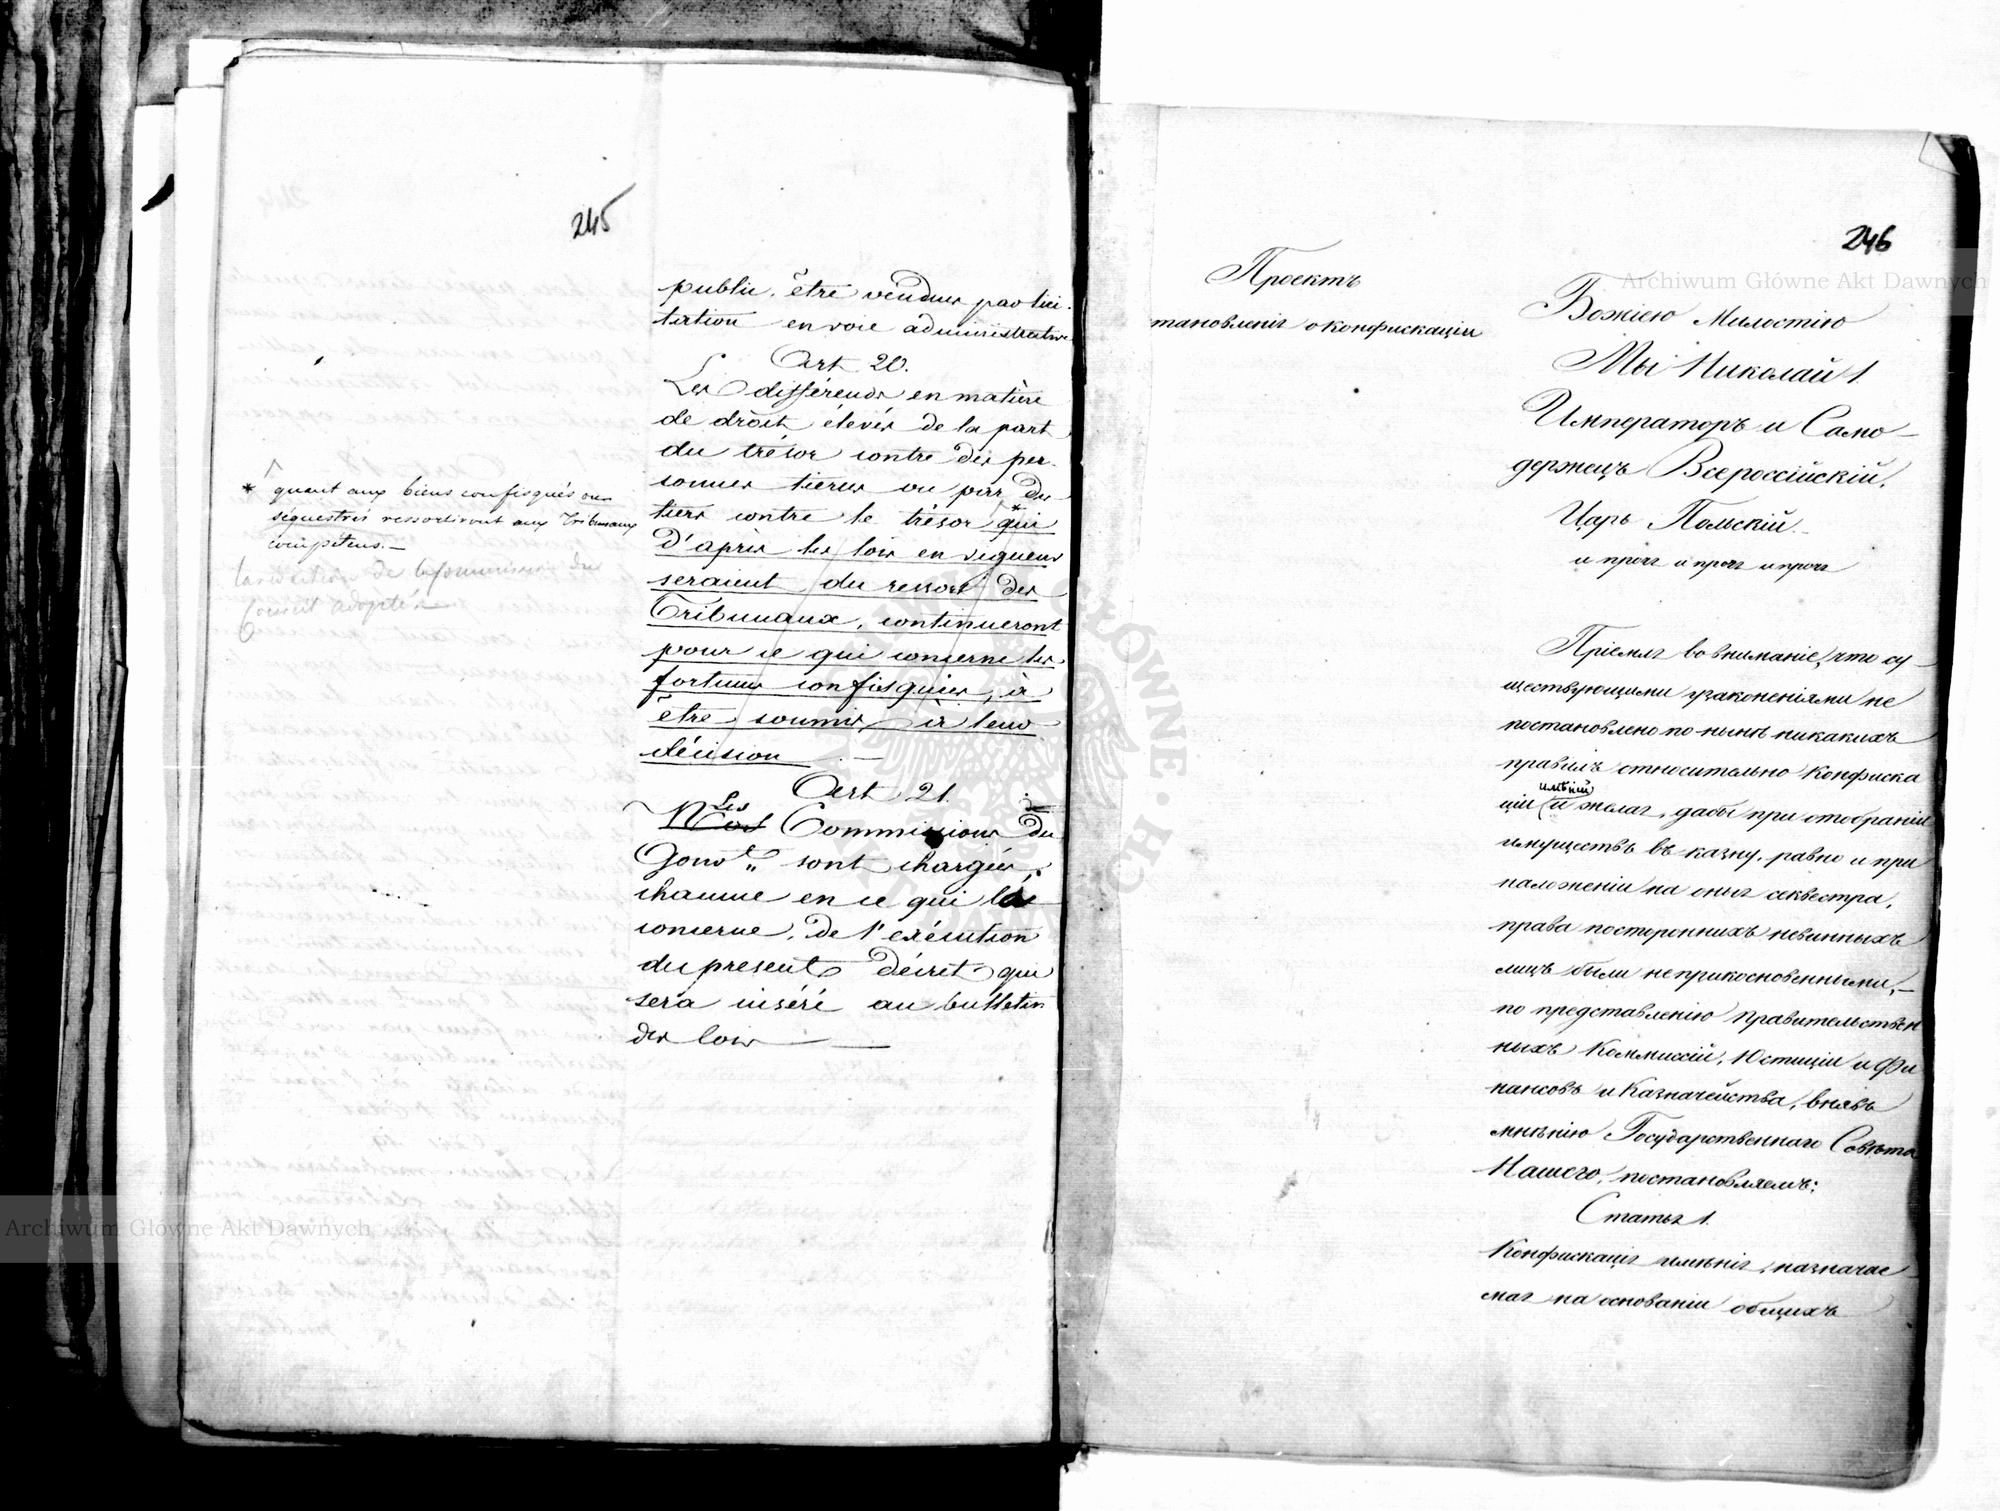 245
public, être vendus par lici-
tation en voie administrative
Art 20.
Les différends en matière
de droit élevés de la part
du trésor contre des per-
sonnes tierces ou par des
tiers contre le trésor * qui
d'après les lois en vigueur
seraient du ressort des
Tribunaux, continueront
pour ce qui concerne les
fortunes confisquées, à
être soumis à leur
décision. —
Art 21.
Les
Nos Commissions du
Gouvt sont chargées,
chacune en ce qui la
concerne, de l'exécution
du présent décret qui
sera inséré au bulletin
des lois —
* quant aux biens confisqués ou
séquestrés ressortiront aux Tribunaux
compétens. —
la rédaction de la Commission du
Conseil adoptée.
246
Проектъ
тановленія о конфискаціи
Божіею Милостію
Мы Николай 1.
Императоръ и Само-
держецъ Всероссійскій,
Царь Польскій.
и проч и проч и проч
Пріемля во вниманіе, что су-
ществующими узаконеніями не
постановлено по нынѣ никакихъ
правилъ относительно конфиска
имѣній
ціи и желая, дабы при отобраніи
имуществъ въ казну, равно и при
наложеніи на оныя секвестра,
права постороннихъ невинныхъ
лицъ были неприкосновенными, —
по представленію Правительствен
ныхъ Коммиссій, Юстиціи и Фи
нансовъ и Казначейства, внявъ
мнѣнію Государственнаго Совѣта
Нашего, постановляемъ:
Статья 1.
Конфискація имѣнія, назначае
мая на основаніи общихъ
Archiwum Główne Akt Dawnych
Archiwum Główne Akt Dawnych